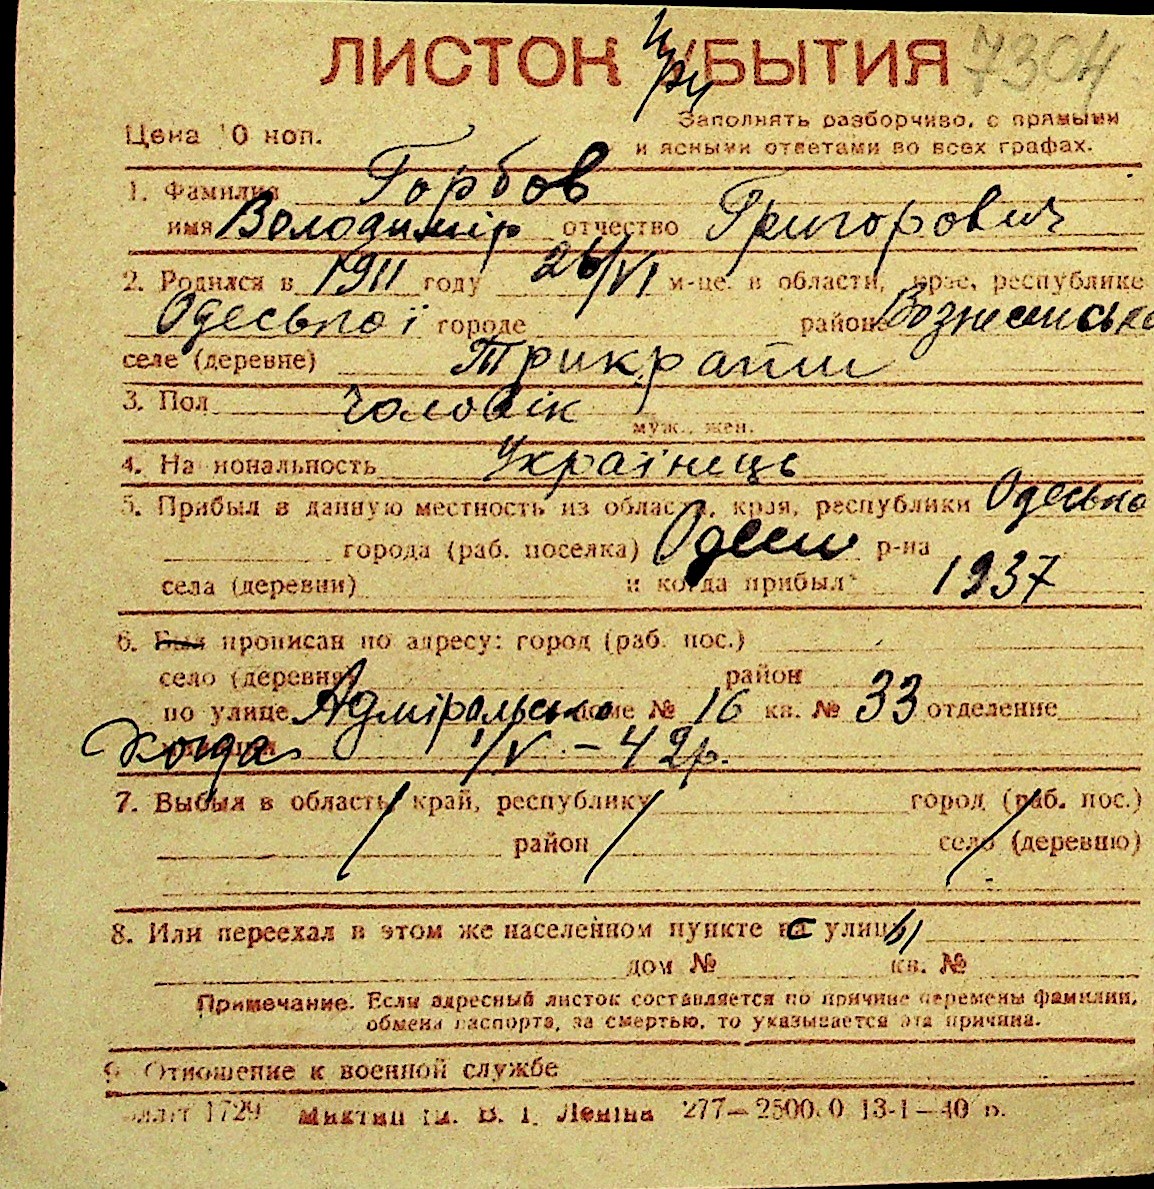 ЛИСТОК УБЫТИЯ При 7304
Заполнять разборчиво, с прямыми
Цена 10 коп. и ясными ответами во всех графах.
1. Фамилия Горбов
имя Володимір отчество Григорович
2. Родился в 1911 году 26/VI м-це. в области, крае, республике
Одеської городе районе Вознесенсько
селе (деревне) Трикрати
3. Пол Чоловік
муж., жен.
4. Национальность Українець
5. Прибыл в данную местность из области, края, республики Одесько
города (раб. поселка) Одеси р-на
села (деревни) и когда прибыл 1937
6. Был прописан по адресу: город (раб. пос.)
село (деревня) район
по улице Адміральсько доме № 16 кв. № 33 отделение
Когда 1/V - 42р.
7. Выбыл в область, край, республику город (раб. пос.)
район село (деревню)
8. Или переехал в этом же населенном пункте с улицы
дом № кв. №
Примечание. Если адресный листок составляется по причине перемены фамилии,
обмена паспорта, за смертью, то указывается эта причина.
9. Отношение к военной службе
1729 Миктип ім. В. І. Леніна 277—2500.0 13-1—40 р.